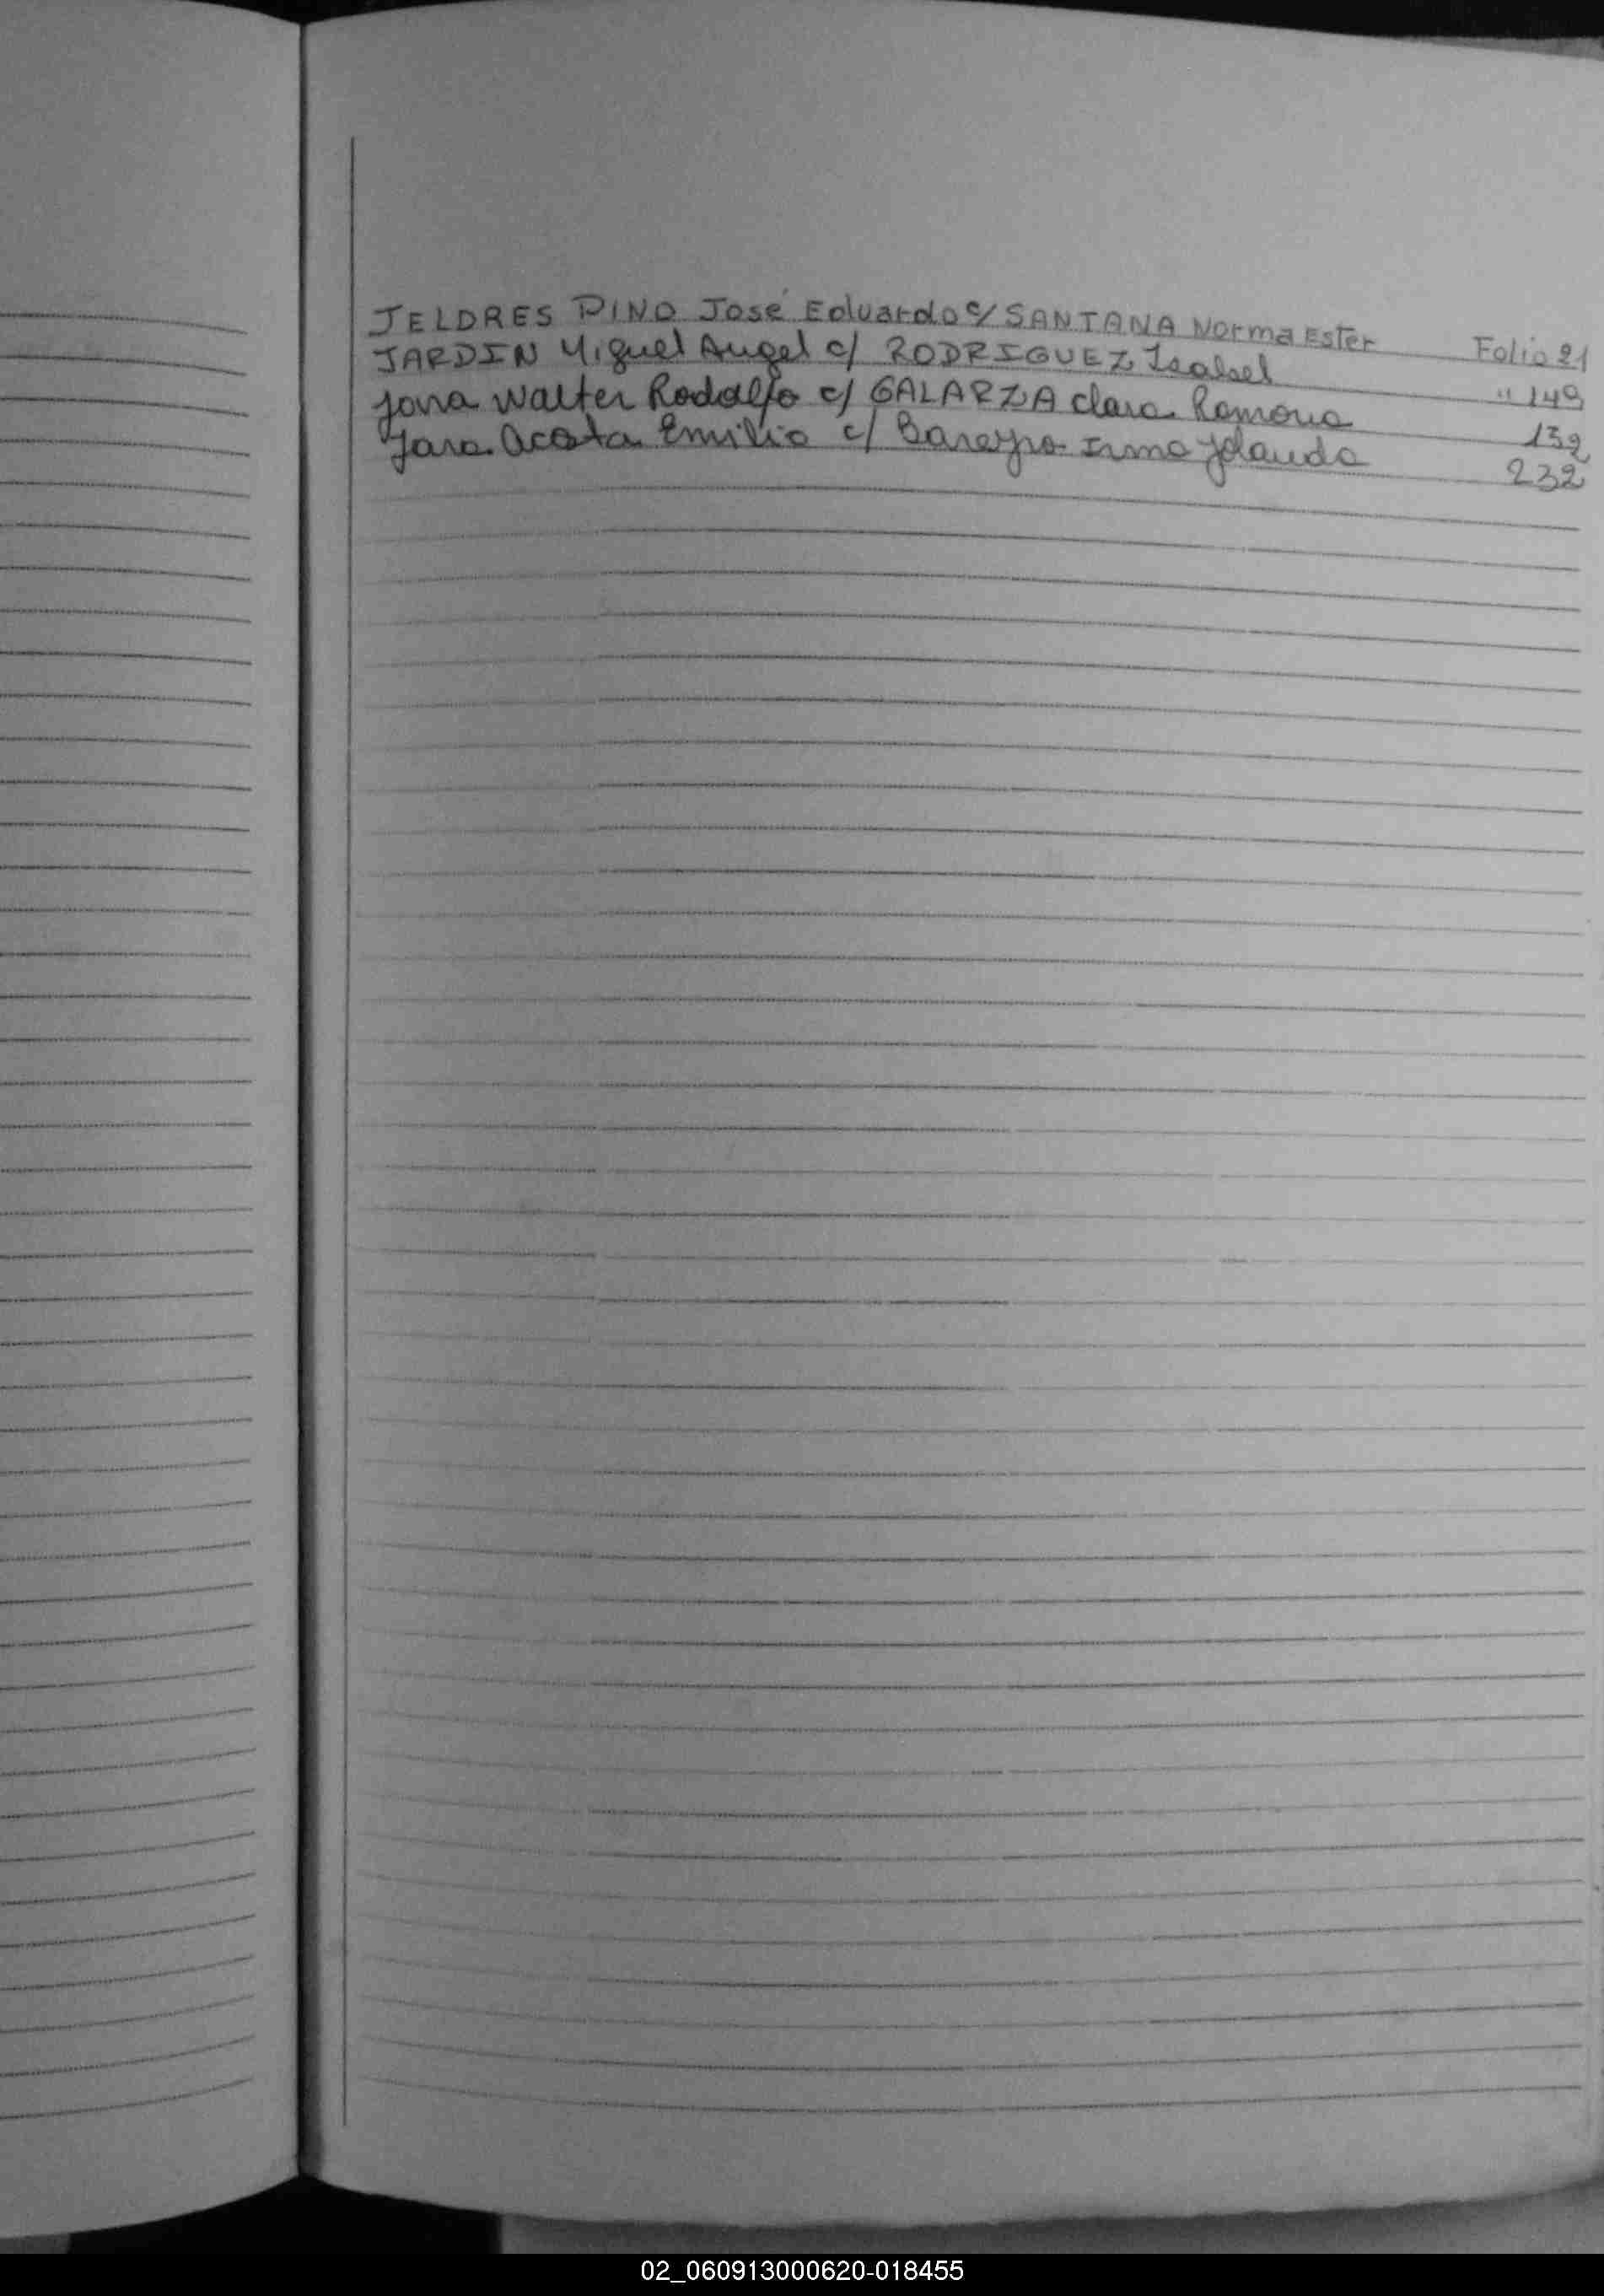 JELDRES PINO José Eduardo c/ SANTANA Norma Ester Folio 21
JARDIN Miguel Angel c/ RODRIGUEZ Isabel " 149
Jara Walter Rodolfo c/ GALARZA Clara Ramona 152
Jara Acosta Emilio c/ Bareyro Irma Yolanda 232
02_060913000620-018455